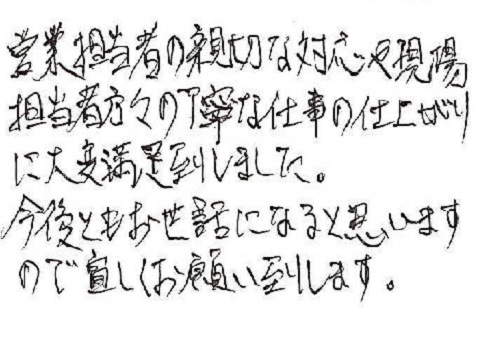 営業担当者の親切な対応や現場
担当者方々の丁寧な仕事の仕上がり
に大変満足到しました。
今後ともお世話になると思います
ので宜しくお願い到します。